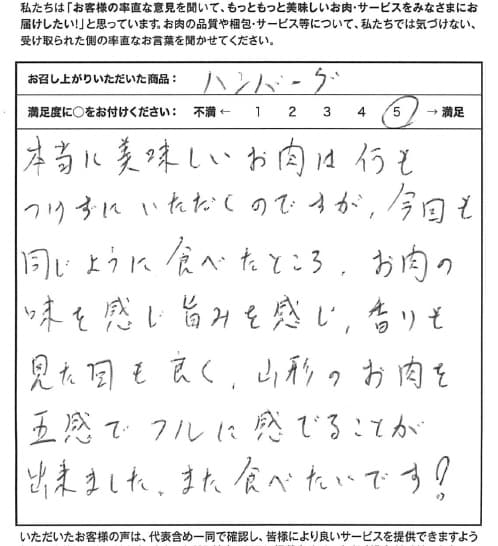 私たちは「お客様の率直な意見を聞いて、もっともっと美味しいお肉・サービスをみなさまにお
届けしたい!」と思っています。お肉の品質や梱包・サービス等について、私たちでは気づけない、
受け取られた側の率直なお言葉を聞かせてください。
お召し上がりいただいた商品： ハンバーグ
満足度に○をお付けください： 不満 ← 1 2 3 4 5 → 満足
本当に美味しいお肉は何も
つけずにいただくのですが、今回も
同じように食べたところ、お肉の
味を感じ旨みを感じ、香りも
見た目も良く、山形のお肉を
五感でフルに感でることが
出来ました。また食べたいです!
いただいたお客様の声は、代表含め一同で確認し、皆様により良いサービスを提供できますよう